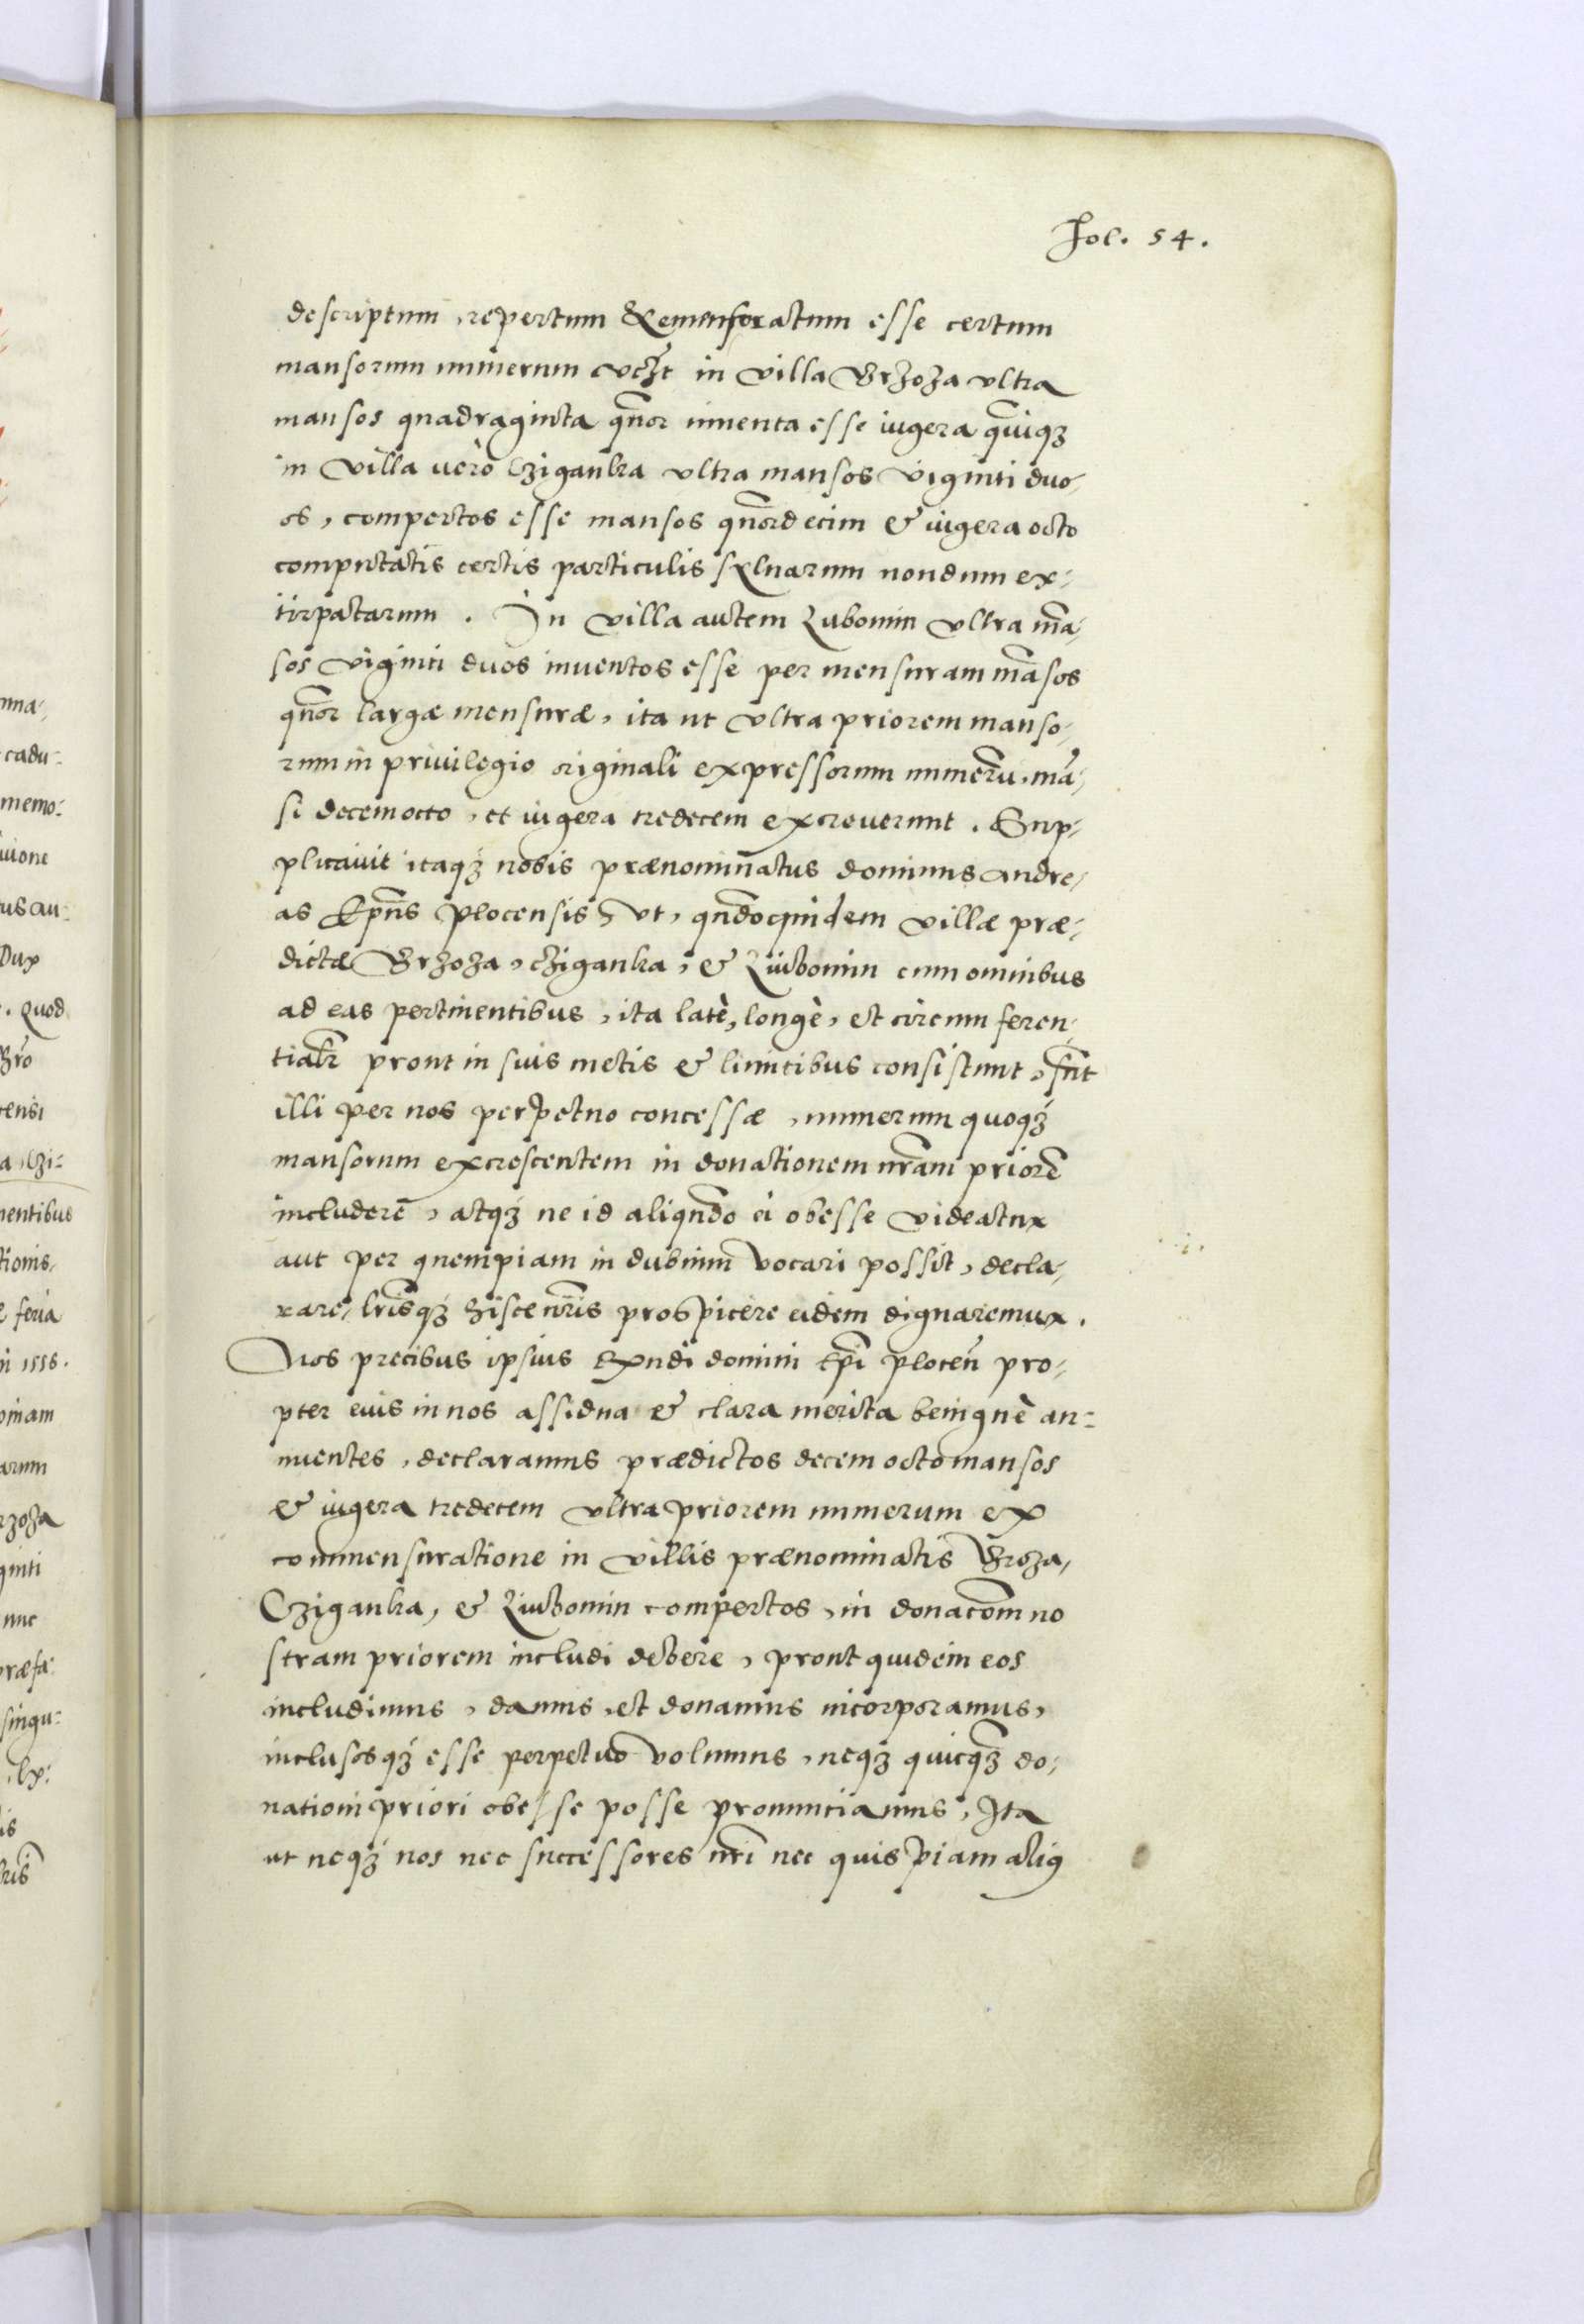 Fol. 54.
descriptum, repertum & emensuratum esse certum
mansorum numerum vczt in villa Brzoza vltra
mansos quadraginta qũor inuenta esse iugera qũiqȝ
in villa verò Cziganka vltra mansos viginti duo-
os, compertos esse mansos qũordecim & iugera octo
computatis certis particulis sylvarum nondum ex-
tirpatarum. In villa autem Lubomin vltra mã-
sos viginti duos inuentos esse per mensuram mãsos
qũor largæ mensuræ, ita ut vltra priorem manso-
rum in priuilegio originali expressorum numerũ, mã-
si decem octo, et iugera tredecem excreuerunt. Sup-
plicauit itaqȝ nobis prænominatus dominus Andre-
as Epũs Plocensis, vt, qñdoquidem villæ præ-
dictæ Brzoza, Cziganka, & Liubomin cum omnibus
ad eas pertinentibus, ita latè, longè, et circum feren-
tialr prout in suis metis & limitibus consistunt, sũt
illi per nos perpetuo concessæ, numerum quoqȝ
mansorum excrescentem in donationem nrãm priorẽ
includerẽ, atqȝ ne id aliqñdo ei obesse videatur
aut per quempiam in dubium vocari possit, decla-
rare, lrĩsqȝ hisce nrĩs prospicere eidem dignaremur.
Nos precibus ipsius Rñdi domini Epĩ Ploceñ pro-
pter eius in nos assidua & clara merita benignè an-
nuentes, declaramus prædictos decem octo mansos
& iugera tredecem vltra priorem numerum ex
commensuratione in villis prænominatis Broza,
Cziganka, & Liubomin compertos, in donacõm no
stram priorem includi debere, prout quidem eos
includimus, damus, et donamus incorporamus,
inclusosqȝ esse perpetuo volumus, neqȝ quicqȝ do-
nationi priori obesse posse pronunciamus, Ita
ut neqȝ nos nec successores nrĩ nec quispiam aliꝰ